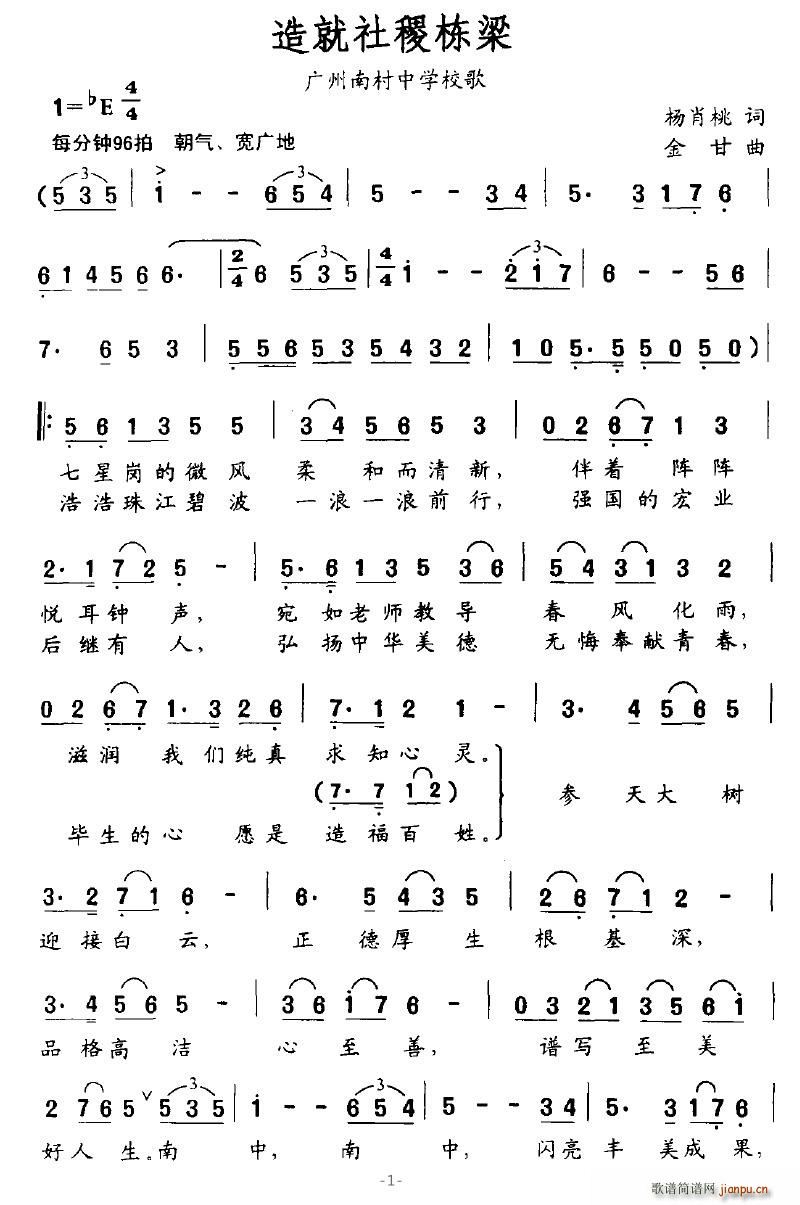 造就社稷栋梁
广州南村中学校歌
1=♭E 4/4
杨肖桃 词
每分钟96拍 朝气、宽广地
金 甘 曲
(5 3 5 | i - - 6 5 4 | 5 - - 3 4 | 5· 3 1 7 6 |
6 1 4 5 6 6 6· | 2/4 6 5 3 5 | 4/4 i - - 2 i 7 | 6 - - 5 6 |
7· 6 5 3 | 5 5 6 5 3 5 4 3 2 | 1 0 5· 5 5 0 5 0) |
‖: 5 6 1 3 5 5 | 3 4 5 6 5 3 | 0 2 6 7 1 3 |
七星岗的微风 柔 和而清新, 伴着 阵阵
浩浩珠江碧波 一浪一浪前行, 强国的宏业
2· 1 7 2 5 - | 5· 6 1 3 5 3 6 | 5 4 3 1 3 2 |
悦耳钟 声, 宛如老师教导 春 风 化雨,
后继有 人, 弘扬中华美德 无悔奉献青春,
0 2 6 7 1· 3 2 6 | 7· 1 2 1 - | 3· 4 5 6 5 |
滋润 我们纯真 求知心 灵。
(7· 7 1 2)
参 天大 树
毕生的心 愿是 造福百 姓。
3· 2 7 1 6 - | 6· 5 4 3 5 | 2 6 7 1 2 - |
迎接白 云, 正 德厚 生 根 基 深,
3· 4 5 6 5 - | 3 6 i 7 6 - | 0 3 2 1 3 5 6 i |
品格高 洁 心 至 善, 谱写 至 美
2 7 6 5 ∨ 5 3 5 | i - - 6 5 4 | 5 - - 3 4 | 5· 3 1 7 6 |
好人 生。南 中, 南 中, 闪亮 丰 美成 果,
-1-
歌谱简谱网 jianpu.cn